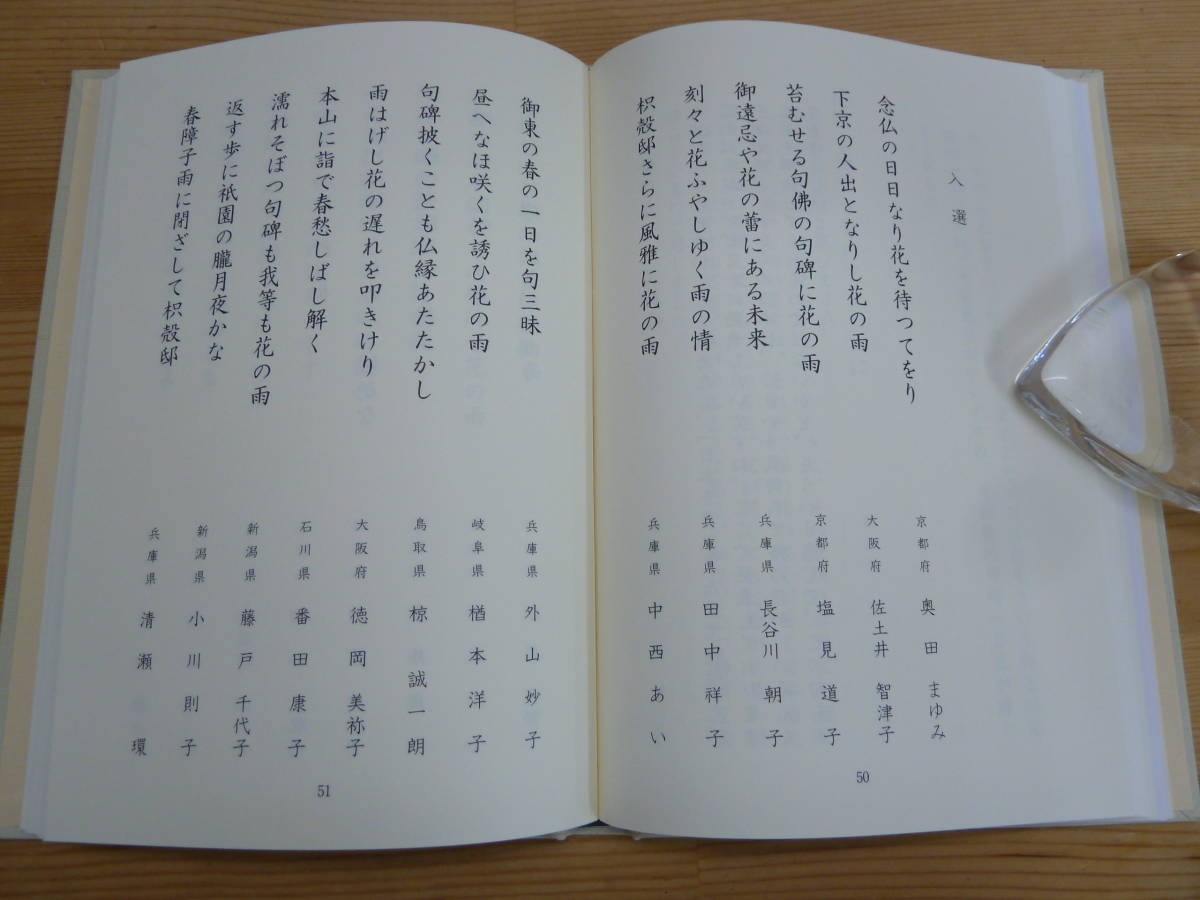 入選
念仏の日日なり花を待つてをり
京都府 奥田 まゆみ
下京の人出となりし花の雨
大阪府 佐土井 智津子
苔むせる句佛の句碑に花の雨
京都府 塩見道子
御遠忌や花の蕾にある未来
兵庫県 長谷川 朝子
刻々と花ふやしゆく雨の情
兵庫県 田中祥子
枳殻邸さらに風雅に花の雨
兵庫県 中西あい
50
御東の春の一日を句三昧
兵庫県 外山妙子
昼へなほ咲くを誘ひ花の雨
岐阜県 楢本洋子
句碑披くことも仏縁あたたかし
鳥取県 椋 誠一朗
雨はげし花の遅れを叩きけり
大阪府 徳岡 美祢子
本山に詣で春愁しばし解く
石川県 番田康子
濡れそぼつ句碑も我等も花の雨
新潟県 藤戸 千代子
返す歩に祇園の朧月夜かな
新潟県 小川則子
春障子雨に閉ざして枳殻邸
兵庫県 清瀬 環
51